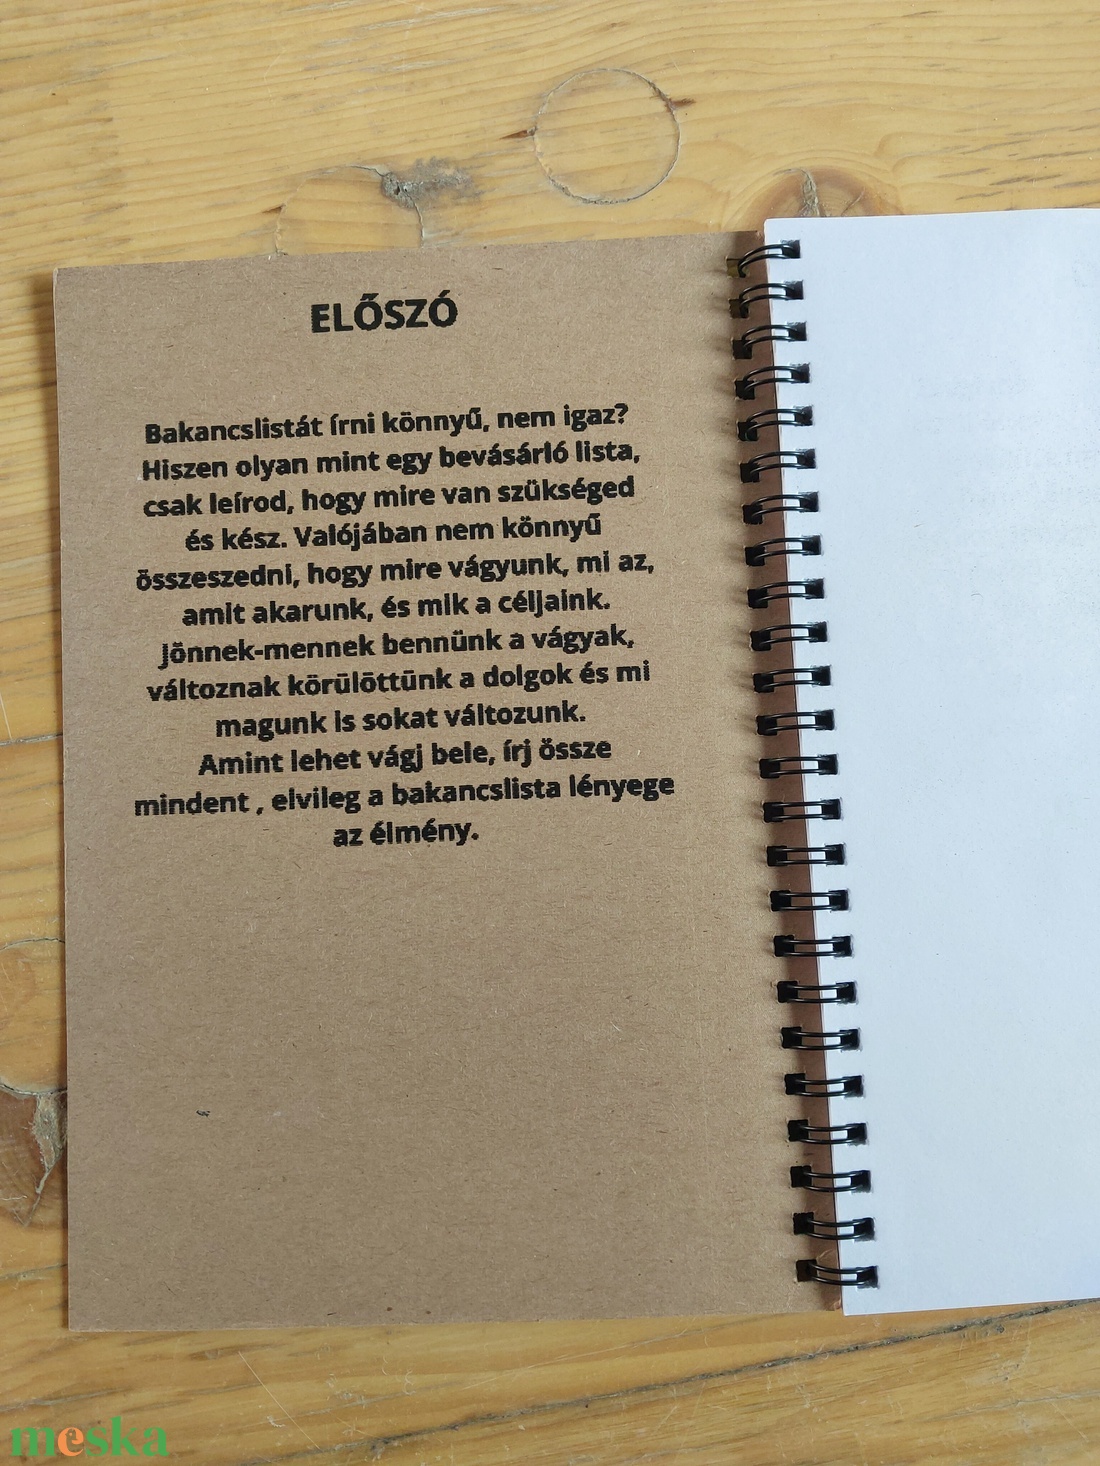 ELŐSZÓ
Bakancslistát írni könnyű, nem igaz?
Hiszen olyan mint egy bevásárló lista,
csak leírod, hogy mire van szükséged
és kész. Valójában nem könnyű
összeszedni, hogy mire vágyunk, mi az,
amit akarunk, és mik a céljaink.
Jönnek-mennek bennünk a vágyak,
változnak körülöttünk a dolgok és mi
magunk is sokat változunk.
Amint lehet vágj bele, írj össze
mindent , elvileg a bakancslista lényege
az élmény.
meska